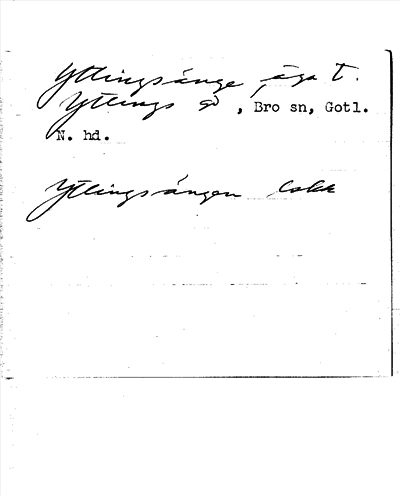 Yttingsänge, äga t.
Yttings gd, Bro sn, Gotl.
N. hd.
Yttingsängen lokk